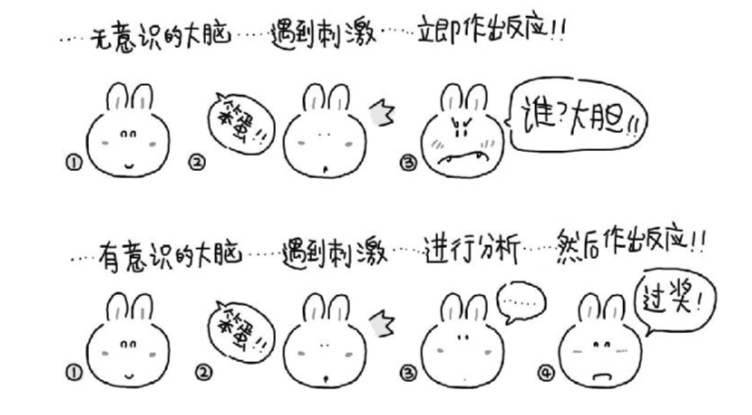 ……无意识的大脑……遇到刺激……立即作出反应!!
① ② 笨蛋!! ③ 谁?大胆!!
……有意识的大脑……遇到刺激……进行分析……然后作出反应!!
① ② 笨蛋!! ③ …… ④ 过奖!